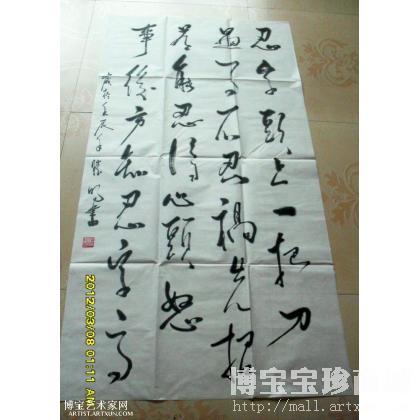 忍字頭上一把刀
遇事不忍禍先招
若能忍得心頭怒
事後方知忍字高
歲在壬辰年 明書
2012/03/08 01:11 AM
博宝艺术家网
ARTIST.ARTXUN.COM
博宝宝珍商
http://mall.artxun.com